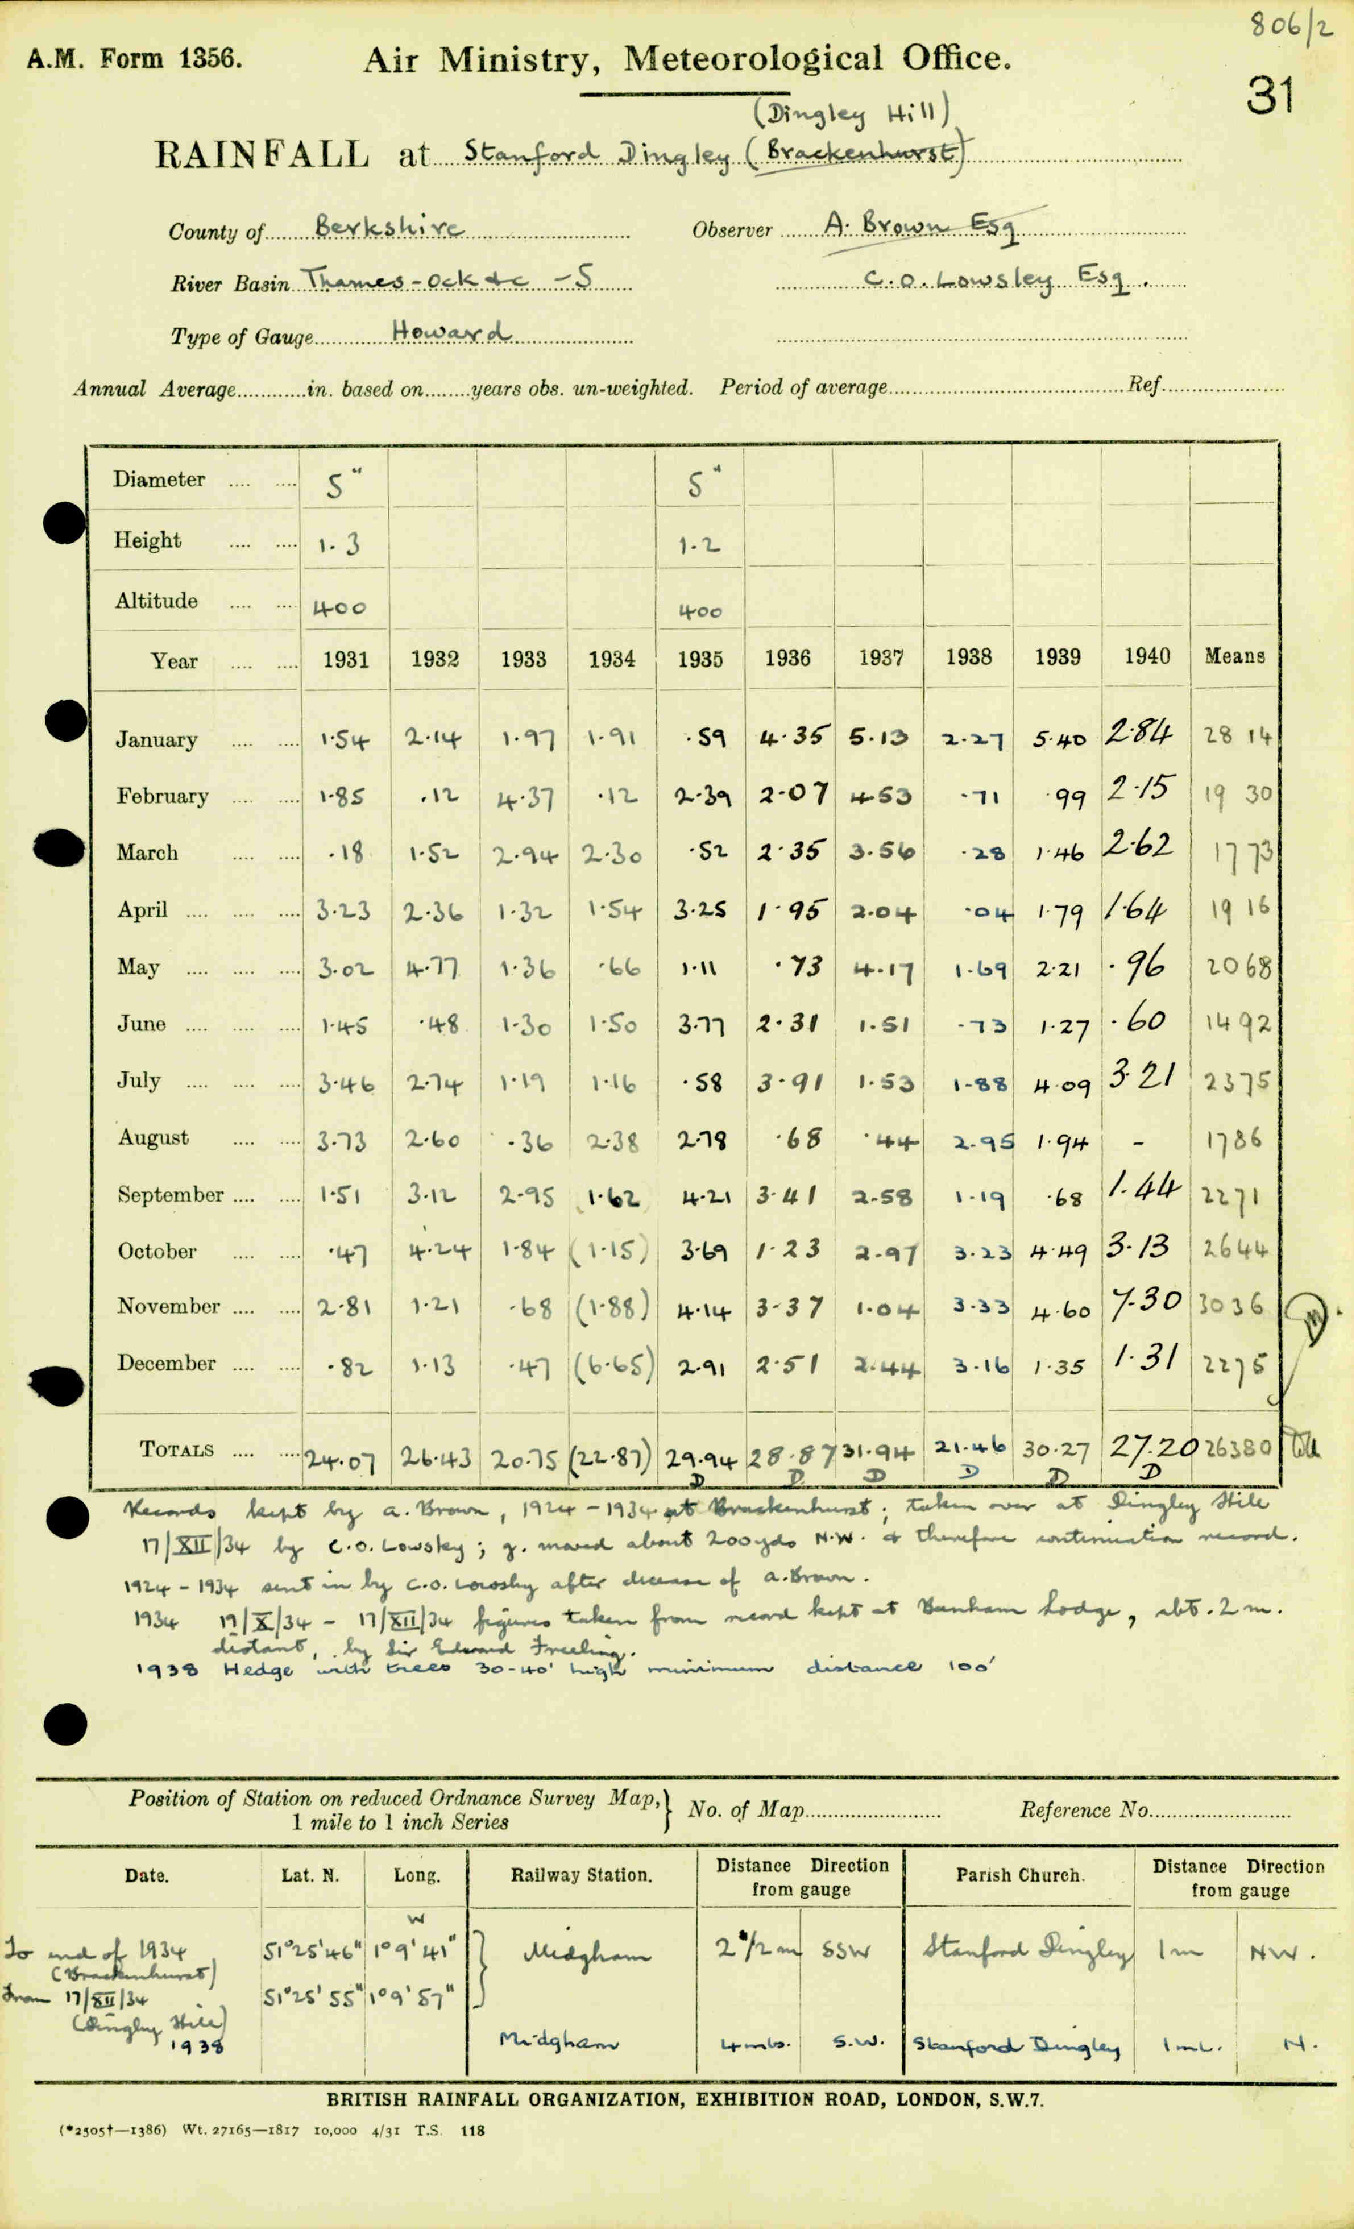 806/2
A.M. Form 1356. Air Ministry, Meteorological Office.
31
(Dingley Hill)
RAINFALL at Stanford Dingley (Brackenhurst)
County of Berkshire Observer A. Brown Esq
River Basin Thames-Ock &c -5 C.O. Lowsley Esq.
Type of Gauge Howard
Annual Average in. based on years obs. un-weighted. Period of average Ref.
Diameter 5" 5"
Height 1.3 1.2
Altitude 400 400
Year 1931 1932 1933 1934 1935 1936 1937 1938 1939 1940 Means
January 1.54 2.14 1.97 1.91 .59 4.35 5.13 2.27 5.40 2.84 28 14
February 1.85 .12 4.37 .12 2.39 2.07 4.53 .71 .99 2.15 19 30
March .18 1.52 2.94 2.30 .52 2.35 3.56 .28 1.46 2.62 17 73
April 3.23 2.36 1.32 1.54 3.25 1.95 2.04 .04 1.79 1.64 19 16
May 3.02 4.77 1.36 .66 1.11 .73 4.17 1.69 2.21 .96 2068
June 1.45 .48 1.30 1.50 3.77 2.31 1.51 .73 1.27 .60 1492
July 3.46 2.74 1.19 1.16 .58 3.91 1.53 1.88 4.09 3.21 2375
August 3.73 2.60 .36 2.38 2.78 .68 .44 2.95 1.94 - 1786
September 1.51 3.12 2.95 1.62 4.21 3.41 2.58 1.19 .68 1.44 2271
October .47 4.24 1.84 (1.15) 3.69 1.23 2.97 3.23 4.49 3.13 2644
November 2.81 1.21 .68 (1.88) 4.14 3.37 1.04 3.33 4.60 7.30 3036
December .82 1.13 .47 (6.65) 2.91 2.51 2.44 3.16 1.35 1.31 2275
TOTALS 24.07 26.43 20.75 (22.87) 29.94 28.87 31.94 21.46 30.27 27.20 26380
D D D D D D
Records kept by A. Brown, 1924-1934 at Brackenhurst; taken over at Dingley Hill
17/XII/34 by C.O. Lowsley; g. moved about 200yds N.W. & therefore continuation record.
1924-1934 sent in by C.O. Lowsley after decease of A. Brown.
1934 19/X/34 - 17/XII/34 figures taken from record kept at Bunham Lodge, abt. 2 m.
distant, by Sir Edward Freeling.
1938 Hedge with trees 30-40' high minimum distance 100'
Position of Station on reduced Ordnance Survey Map, 1 mile to 1 inch Series } No. of Map Reference No.
Date. Lat. N. Long. Railway Station. Distance Direction from gauge Parish Church. Distance Direction from gauge
W
To end of 1934 51°25'46" 1°9'41" Midgham 2 1/2 m SSW Stanford Dingley 1m NW.
(Brackenhurst)
From 17/XII/34 51°25'55" 1°9'57"
(Dingley Hill)
1938 Midgham 4mls. S.W. Stanford Dingley 1ml. N.
BRITISH RAINFALL ORGANIZATION, EXHIBITION ROAD, LONDON, S.W.7.
(*2505†—1386) Wt. 27165—1817 10,000 4/31 T.S. 118